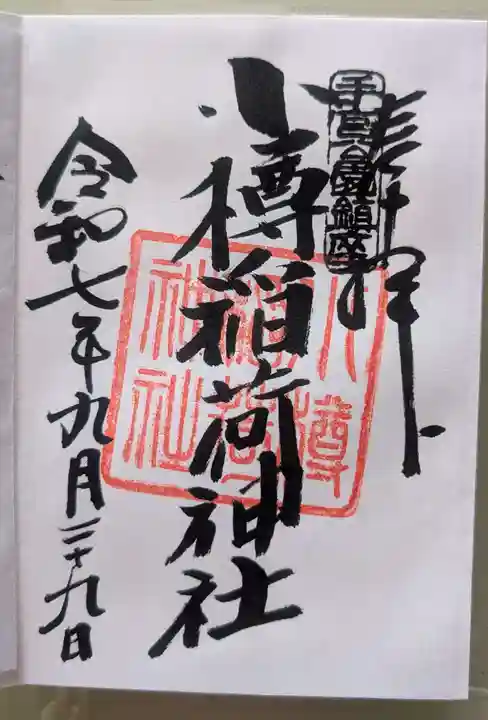 奉拝
手宮鎮座
小樽稲荷神社
小樽稲荷神社
令和七年九月二十九日